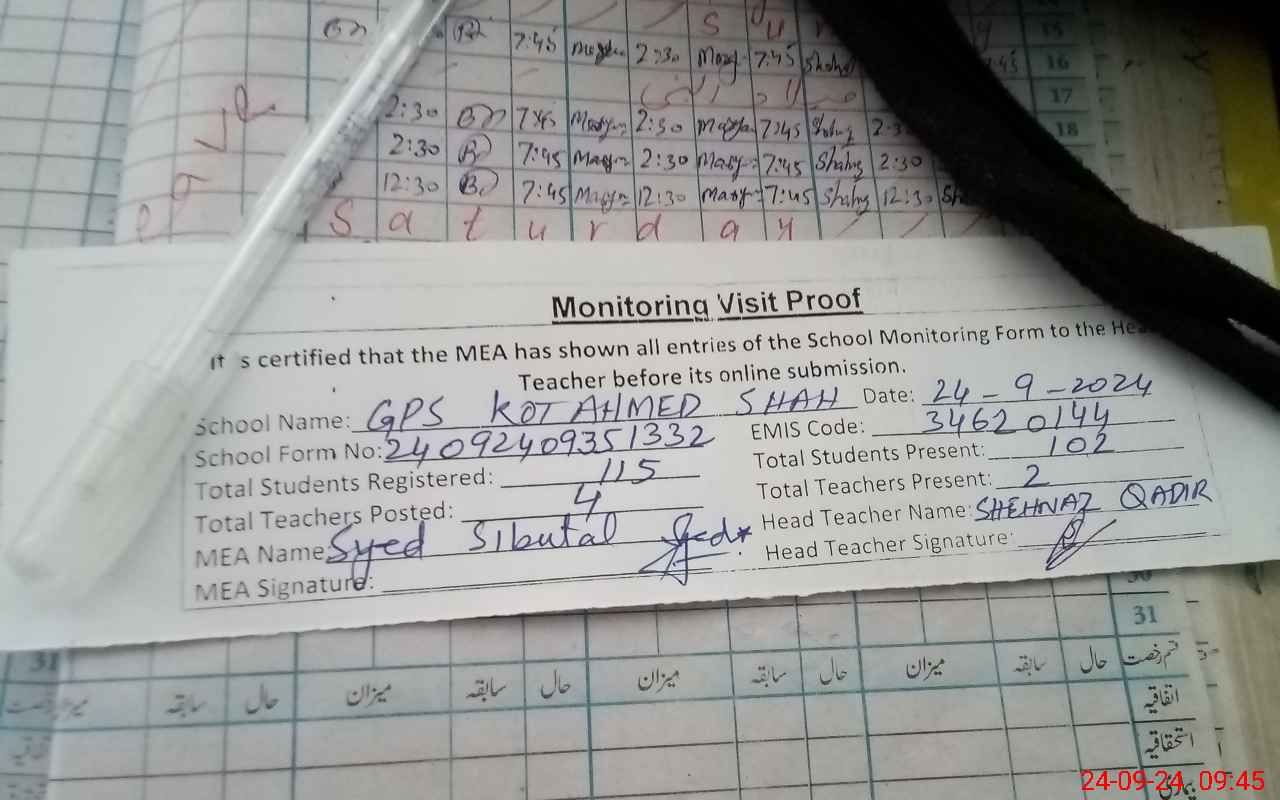 S u r
7:45 2:30 Mary 7:45 16
17
2:30 7:45 2:30 7:45 18
2:30 7:45 Mary 2:30 Mary 7:45 Shahn 2:30
12:30 7:45 Mary 12:30 Mary 7:45 Shahn 12:30
S a t u r d a y
Monitoring Visit Proof
It s certified that the MEA has shown all entries of the School Monitoring Form to the Hea
Teacher before its online submission.
School Name: GPS KOT AHMED SHAH Date: 24-9-2024
School Form No: 24092409351332 EMIS Code: 34620144
Total Students Registered: 115 Total Students Present: 102
Total Teachers Posted: 4 Total Teachers Present: 2
MEA Name: Syed Sibutal Head Teacher Name: SHEHNAZ QADIR
MEA Signature: Head Teacher Signature:
30
31 31
قسم رخصت حال سابقہ میزان حال سابقہ میزان حال سابقہ میزان حال سابقہ میزان
اتفاقیہ
استحقاقیہ
بیماری
24-09-24, 09:45